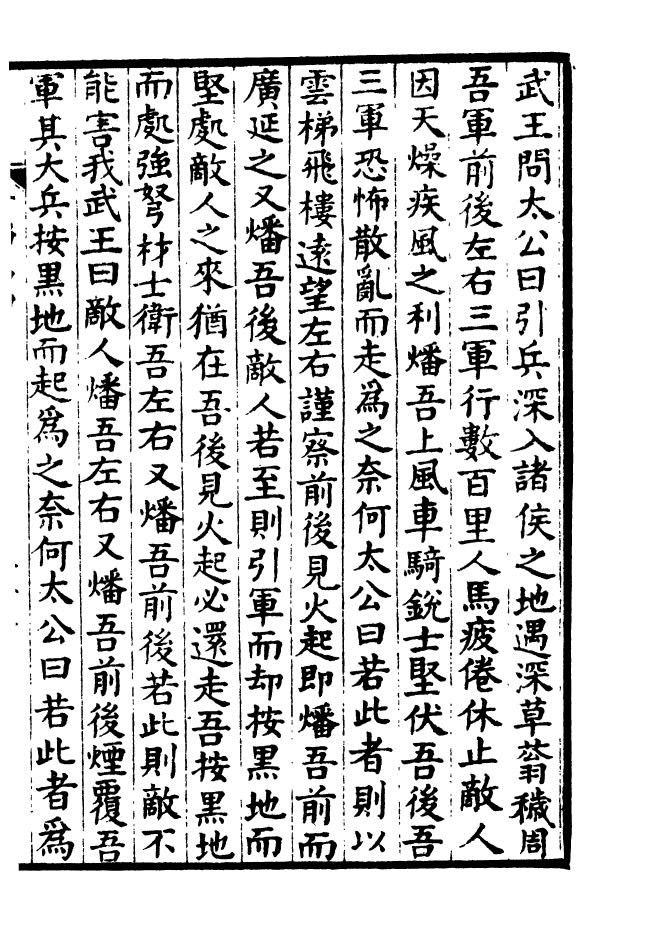 武王問太公曰引兵深入諸侯之地遇深草蓊穢周
吾軍前後左右三軍行數百里人馬疲倦休止敵人
因天燥疾風之利燔吾上風車騎銳士堅伏吾後吾
三軍恐怖散亂而走為之奈何太公曰若此者則以
雲梯飛樓遠望左右謹察前後見火起即燔吾前而
廣延之又燔吾後敵人若至則引軍而却按黑地而
堅處敵人之來猶在吾後見火起必還走吾按黑地
而處強弩材士衛吾左右又燔吾前後若此則敵不
能害我武王曰敵人燔吾左右又燔吾前後煙覆吾
軍其大兵按黑地而起為之奈何太公曰若此者為